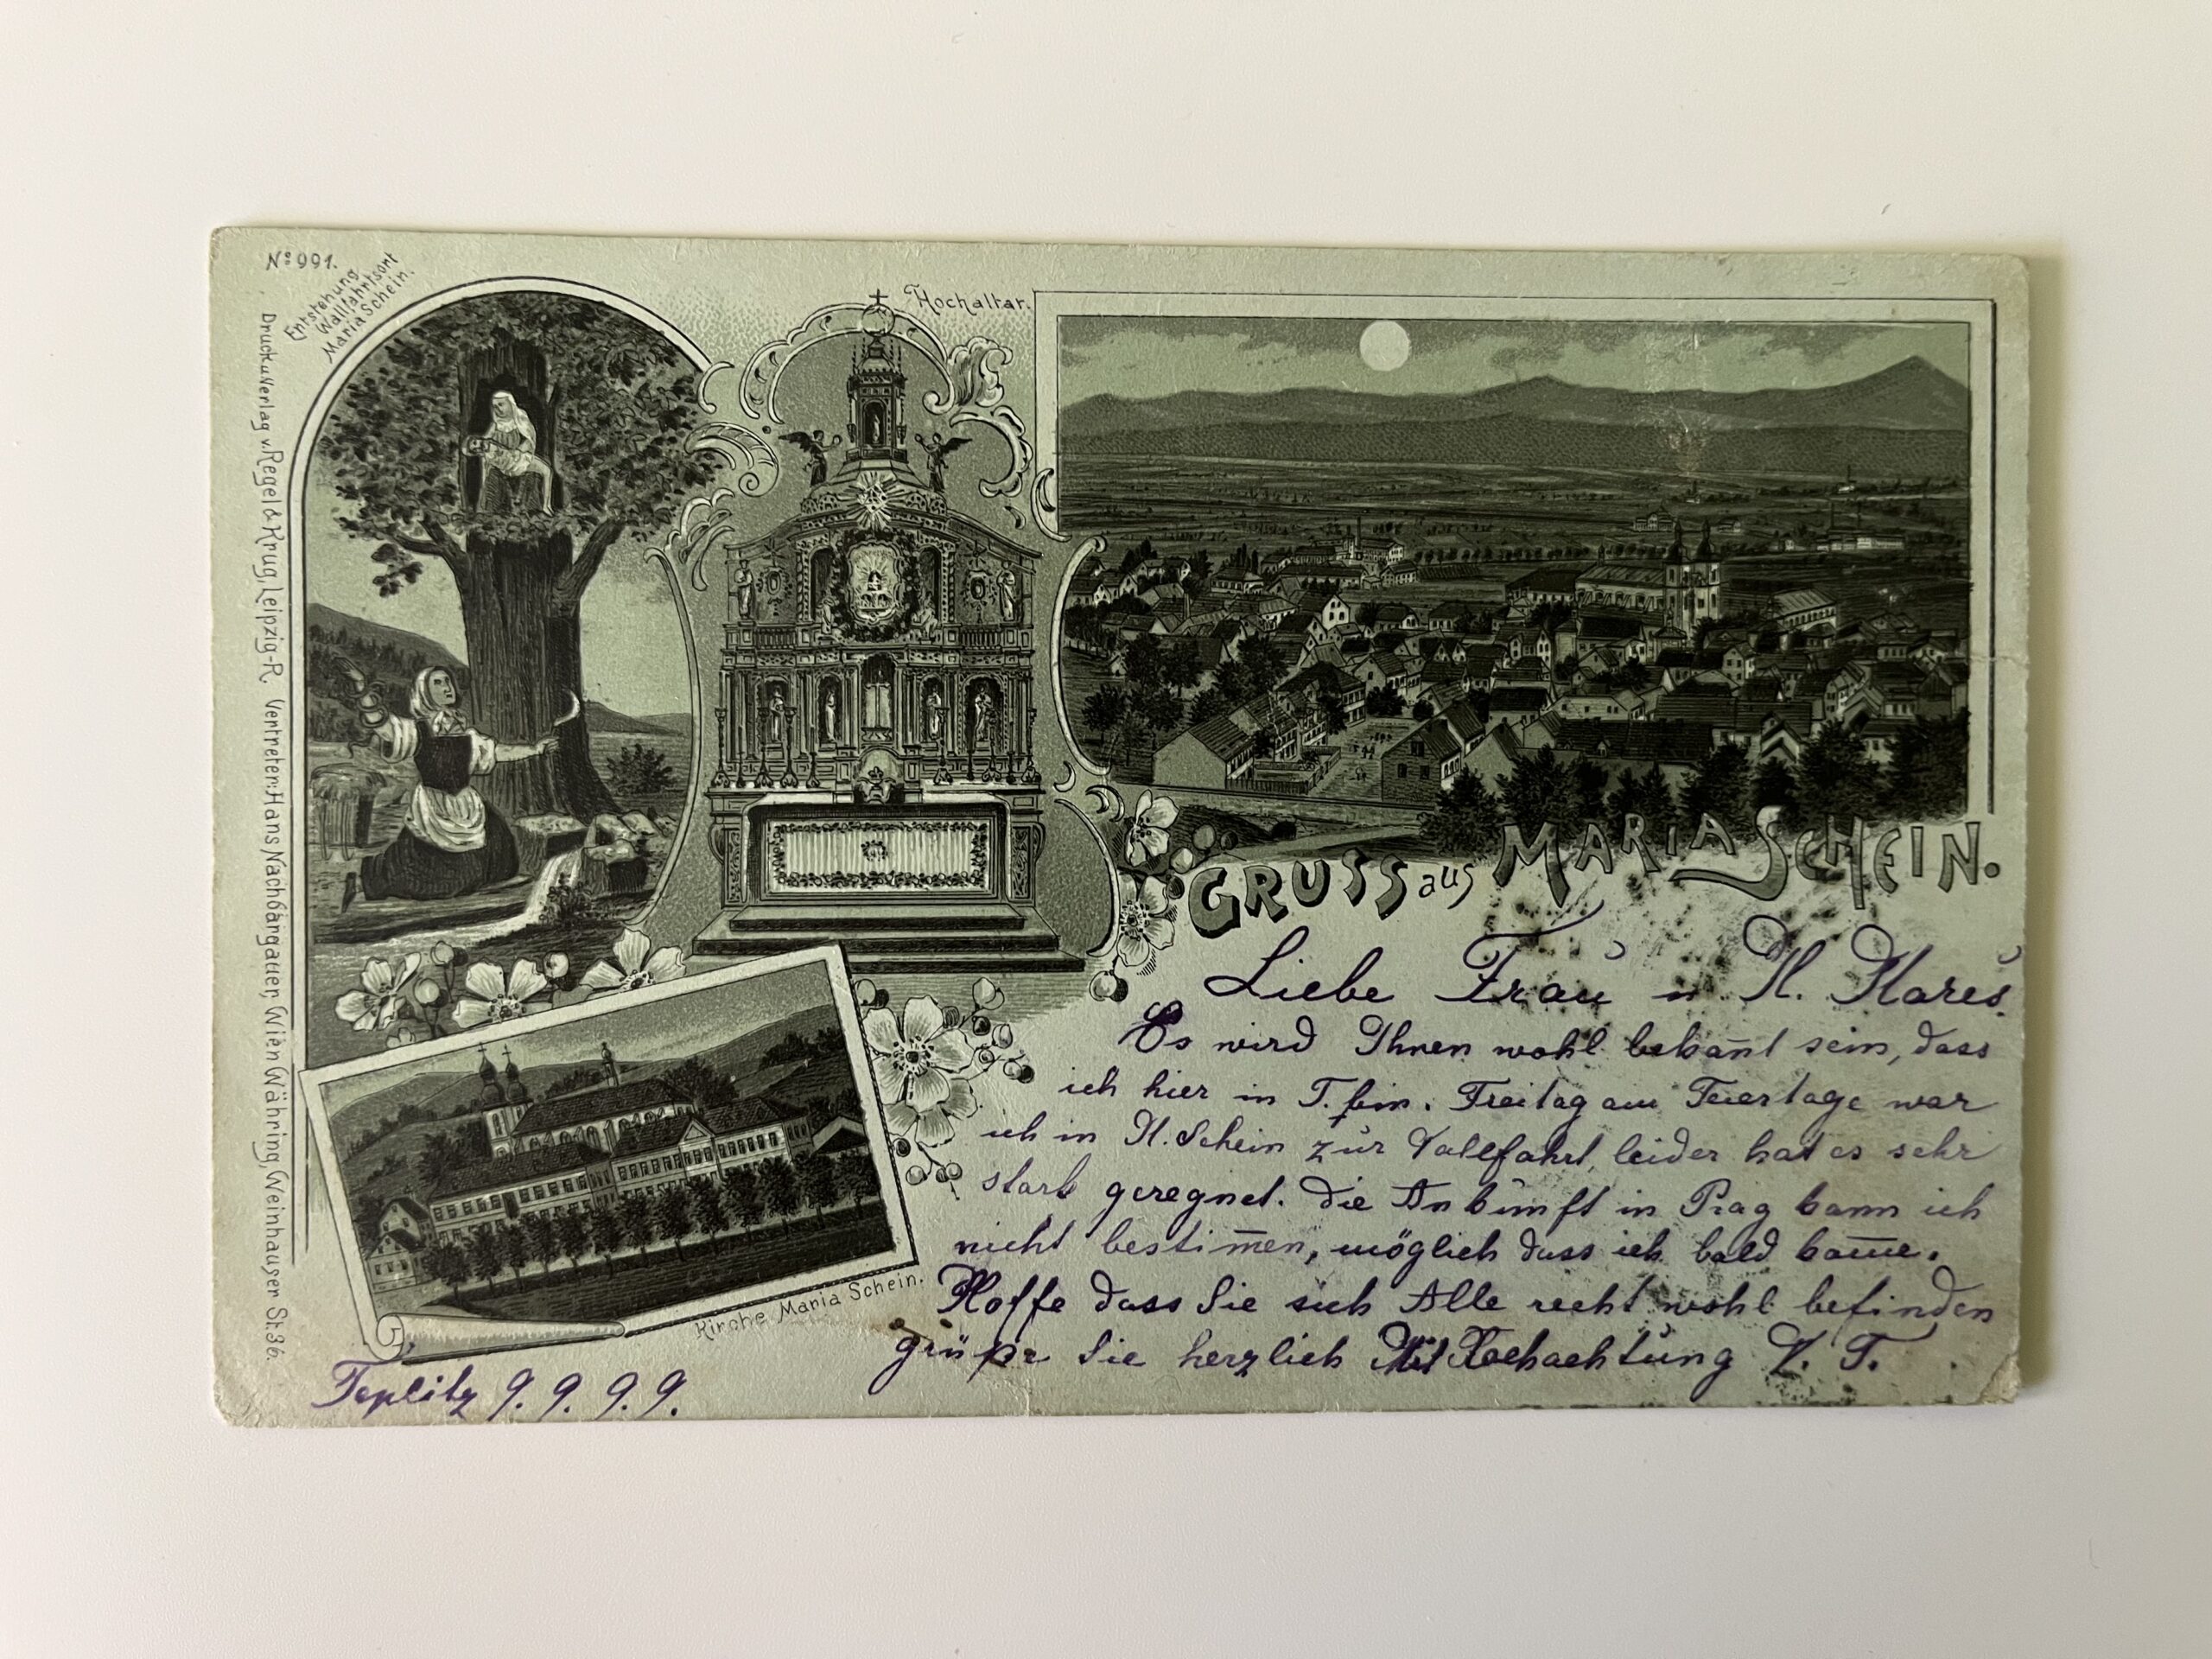 Nº 991.
Entstehung
Wallfahrtsort
Maria Schein.
Hochaltar.
Druck u. Verlag v. Regel & Krug, Leipzig-R. Vertreter: Hans Nachbargauer, Wien Währing, Weinhauser St. 36.
GRUSS aus MARIA SCHEIN.
Liebe Frau u H. Mareś.
Es wird Ihnen wohl bekan̄t sein, dass
ich hier in T. bin. Freitag am Feiertage war
ich in M. Schein zur Wallfahrt, leider hat es sehr
stark geregnet. Die Ankunft in Prag kann ich
nicht bestim̄en, möglich dass ich bald kom̄e.
Hoffe dass Sie sich Alle recht wohl befinden
grüße Sie herzlich Mit Hochachtung
Kirche Maria Schein.
Teplitz 9. 9. 9.9.